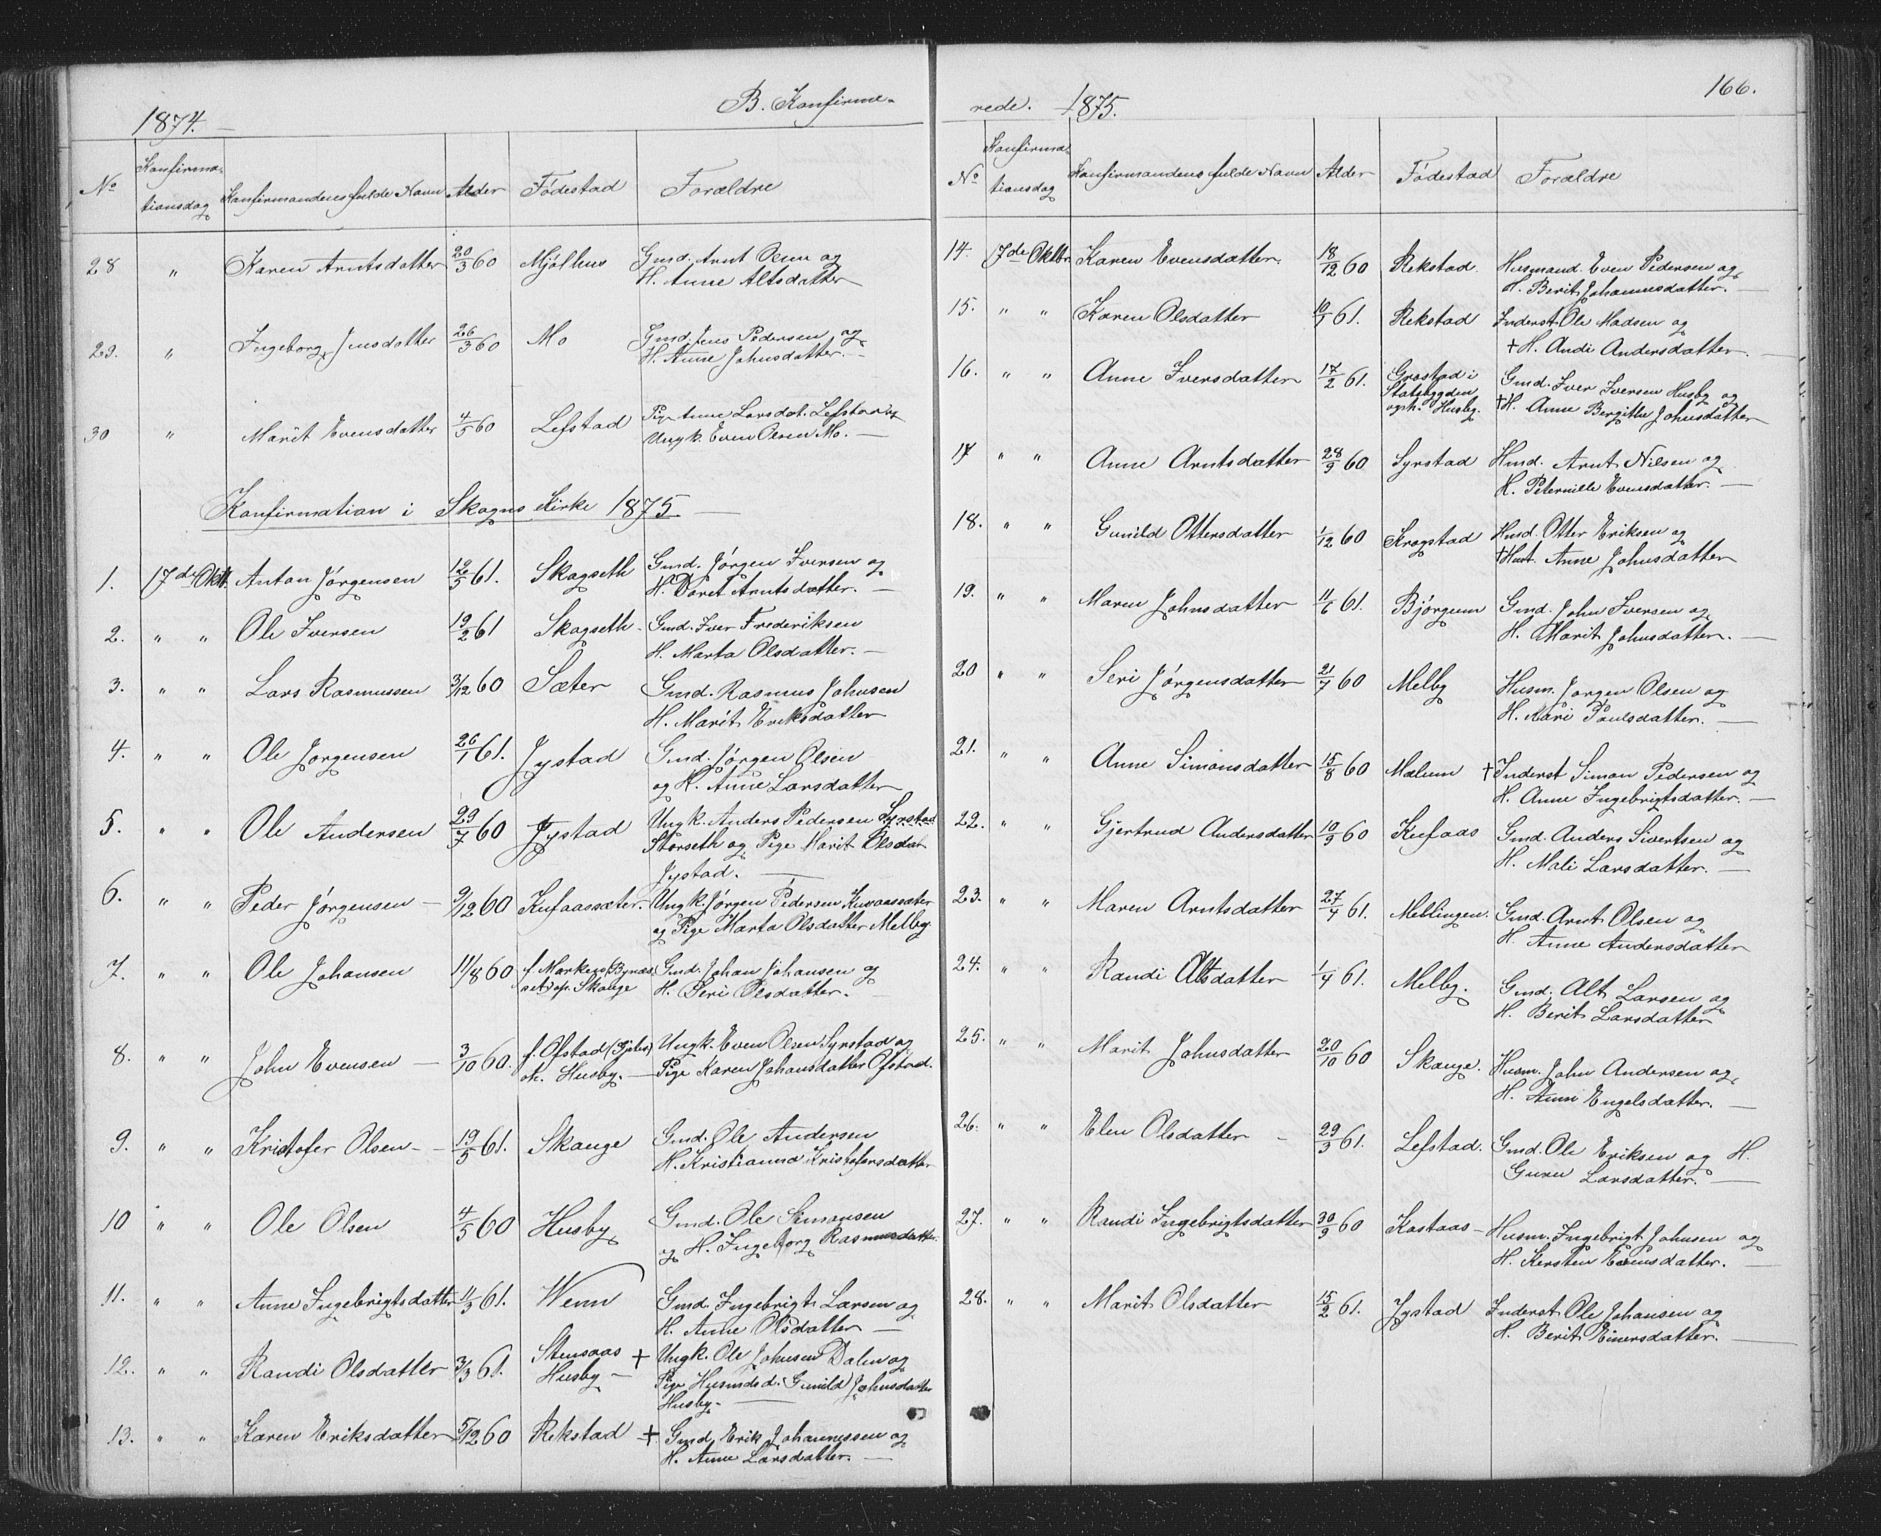 1874.
B. Konfirme-
No
Konfirma-
tionsdag
Konfirmandens fulde Navn
Alder
Födestad
Forældre
28 " Karen Arntsdatter 20/3 60 Mjölhus Gmd. Arnt Olsen og
H. Anne Altsdatter
29. " Ingeborg Jensdatter 26/3 60 Mo Gmd. Jens Pedersen og
H. Anne Johnsdatter. —
30 " Marit Evensdatter 4/5 60 Lefstad Pige Anne Larsdat. Lefstad og
Ungk. Even Olsen Mo. —
Konfirmation i Skogns Kirke 1875. —
1. 17de Oktb. Anton Jörgensen 12/5 61. Skogseth Gmd. Jörgen Iversen og
H. Doret Arntsdatter. —
2. " " Ole Iversen 19/2 61 Skogseth Gmd. Iver Frederiksen
H. Marta Olsdatter. —
3. " " Lars Rasmussen 3/12 60 Sæter Gmd. Rasmus Johnsen
H. Marit Eriksdatter
4. " " Ole Jörgensen 26/1 61. Jystad Gmd. Jörgen Olsen
og H. Anne Larsdatter
5. " " Ole Andersen 29/7 60 Jystad Ungk. Anders Pedersen Syrstad
Storseth og Pige Marit Olsdat
Jystad. —
6. " " Peder Jörgensen — 9/12 60 Kufaassæter. Ungk. Jörgen Pedersen Kuvaassæter
og Pige Marta Olsdatter Melby.
7. " " Ole Johansen 11/8 60 f. Marken (Bynæs) Gmd. Johan Johansen og
Skauge H. Seri Olsdatter. —
8. " " John Evensen — 3/10 60. f. Ofstad Ungk. Even Olsen Syrstad og
Husby. — Pige Karen Johansdatter Ofstad.
9. " " Kristofer Olsen — 19/5 61. Skauge Gmd. Ole Andersen
H. Kristianna Kristofersdatter
10 " " Ole Olsen 4/5 60 Husby Gmd. Ole Simonsen
og H. Ingeborg Rasmusdatter.
11. " " Anne Ingebrigtsdatter 11/3 61. Wenn Gmd. Ingebrigt Larsen og
H. Anne Olsdatter —
12. " " Randi Olsdatter 3/3 61. Stensaas + Ungk. Ole Johnsen Dalen og
Husby — Pige Husmdsd. Gunild Johnsdatter
Husby. —
13. " " Karen Eriksdatter 5/12 60 Rekstad + Gmd. Erik Johannessen og
H. Anne Larsdatter. —
rede. 1875.
166.
No
Konfirma-
tionsdag
Konfirmandens fulde Navn
Alder
Födestad
Forældre
14. 17de Oktbr. Karen Evensdatter. 18/12 60 Rekstad. Husmand. Even Pedersen og
H. Berit Johannesdatter. —
15. " " Karen Olsdatter 10/1 61. Rekstad Inderst Ole Madsen og
+ H. Andi Andersdatter. —
16. " " Anne Iversdatter 17/2 61. Grostad i Gmd. Iver Iversen Husby og
Statsbygden + H. Anne Bergitte Johnsdatter
oph. Husby.
17 " " Anne Arntsdatter 28/9 60 Syrstad Hmd. Arnt Nilsen og
H. Peternille Evensdatter. —
18. " " Gunild Ottersdatter 1/12 60 Krogstad Husd. Otter Eriksen og
+ Hust. Anne Johnsdatter
19. " " Maren Johnsdatter 11/6 61. Björgum Gmd. John Iversen og
H. Marit Johnsdatter. —
20 " " Seri Jörgensdatter 21/7 60 Melby Husm. Jörgen Olsen og
H. Kari Paulsdatter. —
21. " " Anne Simonsdatter 15/8 60 Mælum + Inderst Simon Pedersen og
H. Anne Ingebrigtsdatter. —
22. " " Gjertrud Andersdatter 10/9 60 Kufaas Gmd. Anders Sivertsen og
H. Mali Larsdatter. —
23. " " Maren Arntsdatter 27/4 61. Mellingen. Gmd. Arnt Olsen og
H. Anne Andersdatter
24. " " Randi Altsdatter 1/4 61. Melby. Gmd. Alt Larsen og
H. Berit Larsdatter
25. " " Marit Johnsdatter 20/10 60 Skauge. Husm. John Andersen og
H. Anne Engelsdatter. —
26. " " Elen Olsdatter - 29/3 61. Lefstad. Gmd. Ole Eriksen og H.
Guru Larsdatter. —
27. " " Randi Ingebrigtsdatter 30/9 60 Kastaas — Husm. Ingebrigt Johnsen og
H. Kersten Evensdatter. —
28. " " Marit Olsdatter 15/2 61. Jystad Inderst Ole Johansen og
H. Berit Einersdatter. —